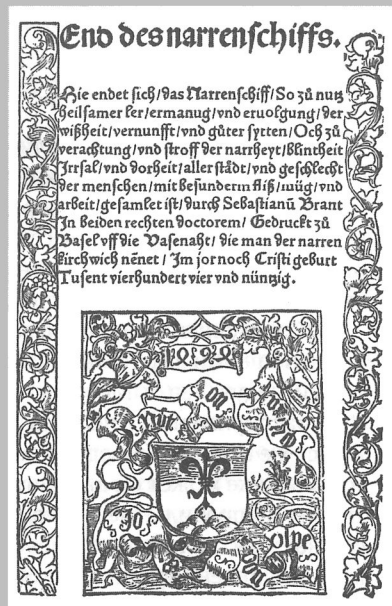 End des narrenschiffs.
Hie endet sich/das Narrenschiff/So zů nutz
heilsamer ler/ermanug/vnd eruolgung/der
wißheit/vernunfft/vnd gůter sytten/Och zů
verachtung/vnd stroff der narrheyt/blintheit
Jrrsal/vnd dorheit/aller städt/vnd geschlecht
der menschen/mit besunderm fliß/müg/vnd
arbeit/gesamlet ist/durch Sebastianū Brant
Jn beiden rechten doctorem/Gedruckt zů
Basel vff die Vasenaht/die man der narren
kirchwich nēnet/Jm jor noch Cristi geburt
Tusent vierhundert vier vnd nüntzig.
1494
Nüt
on
vrsach
Jo
von
olpe